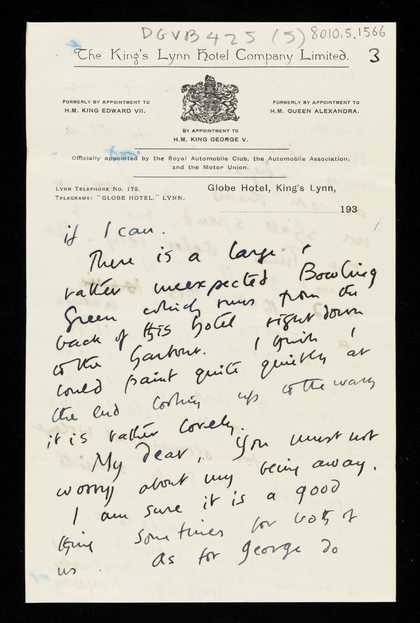 DGVB425 (5) 8010.5.1566
The King's Lynn Hotel Company Limited.
3
Formerly by Appointment to
H.M. King Edward VII.
Formerly by Appointment to
H.M. Queen Alexandra.
By Appointment to
H.M. King George V.
Officially appointed by the Royal Automobile Club, the Automobile Association,
and the Motor Union.
Lynn Telephone No. 175.
Telegrams: "Globe Hotel," Lynn.
Globe Hotel, King's Lynn,
193
if I can.
There is a large &
rather unexpected Bowling
Green which runs from the
back of this hotel right down
to the harbour. I think I
could paint quite quietly at
the end looking up to the
it is rather lovely.
My dear, you must not
worry about my being away.
I am sure it is a good
thing sometimes for both of
us. As for George do